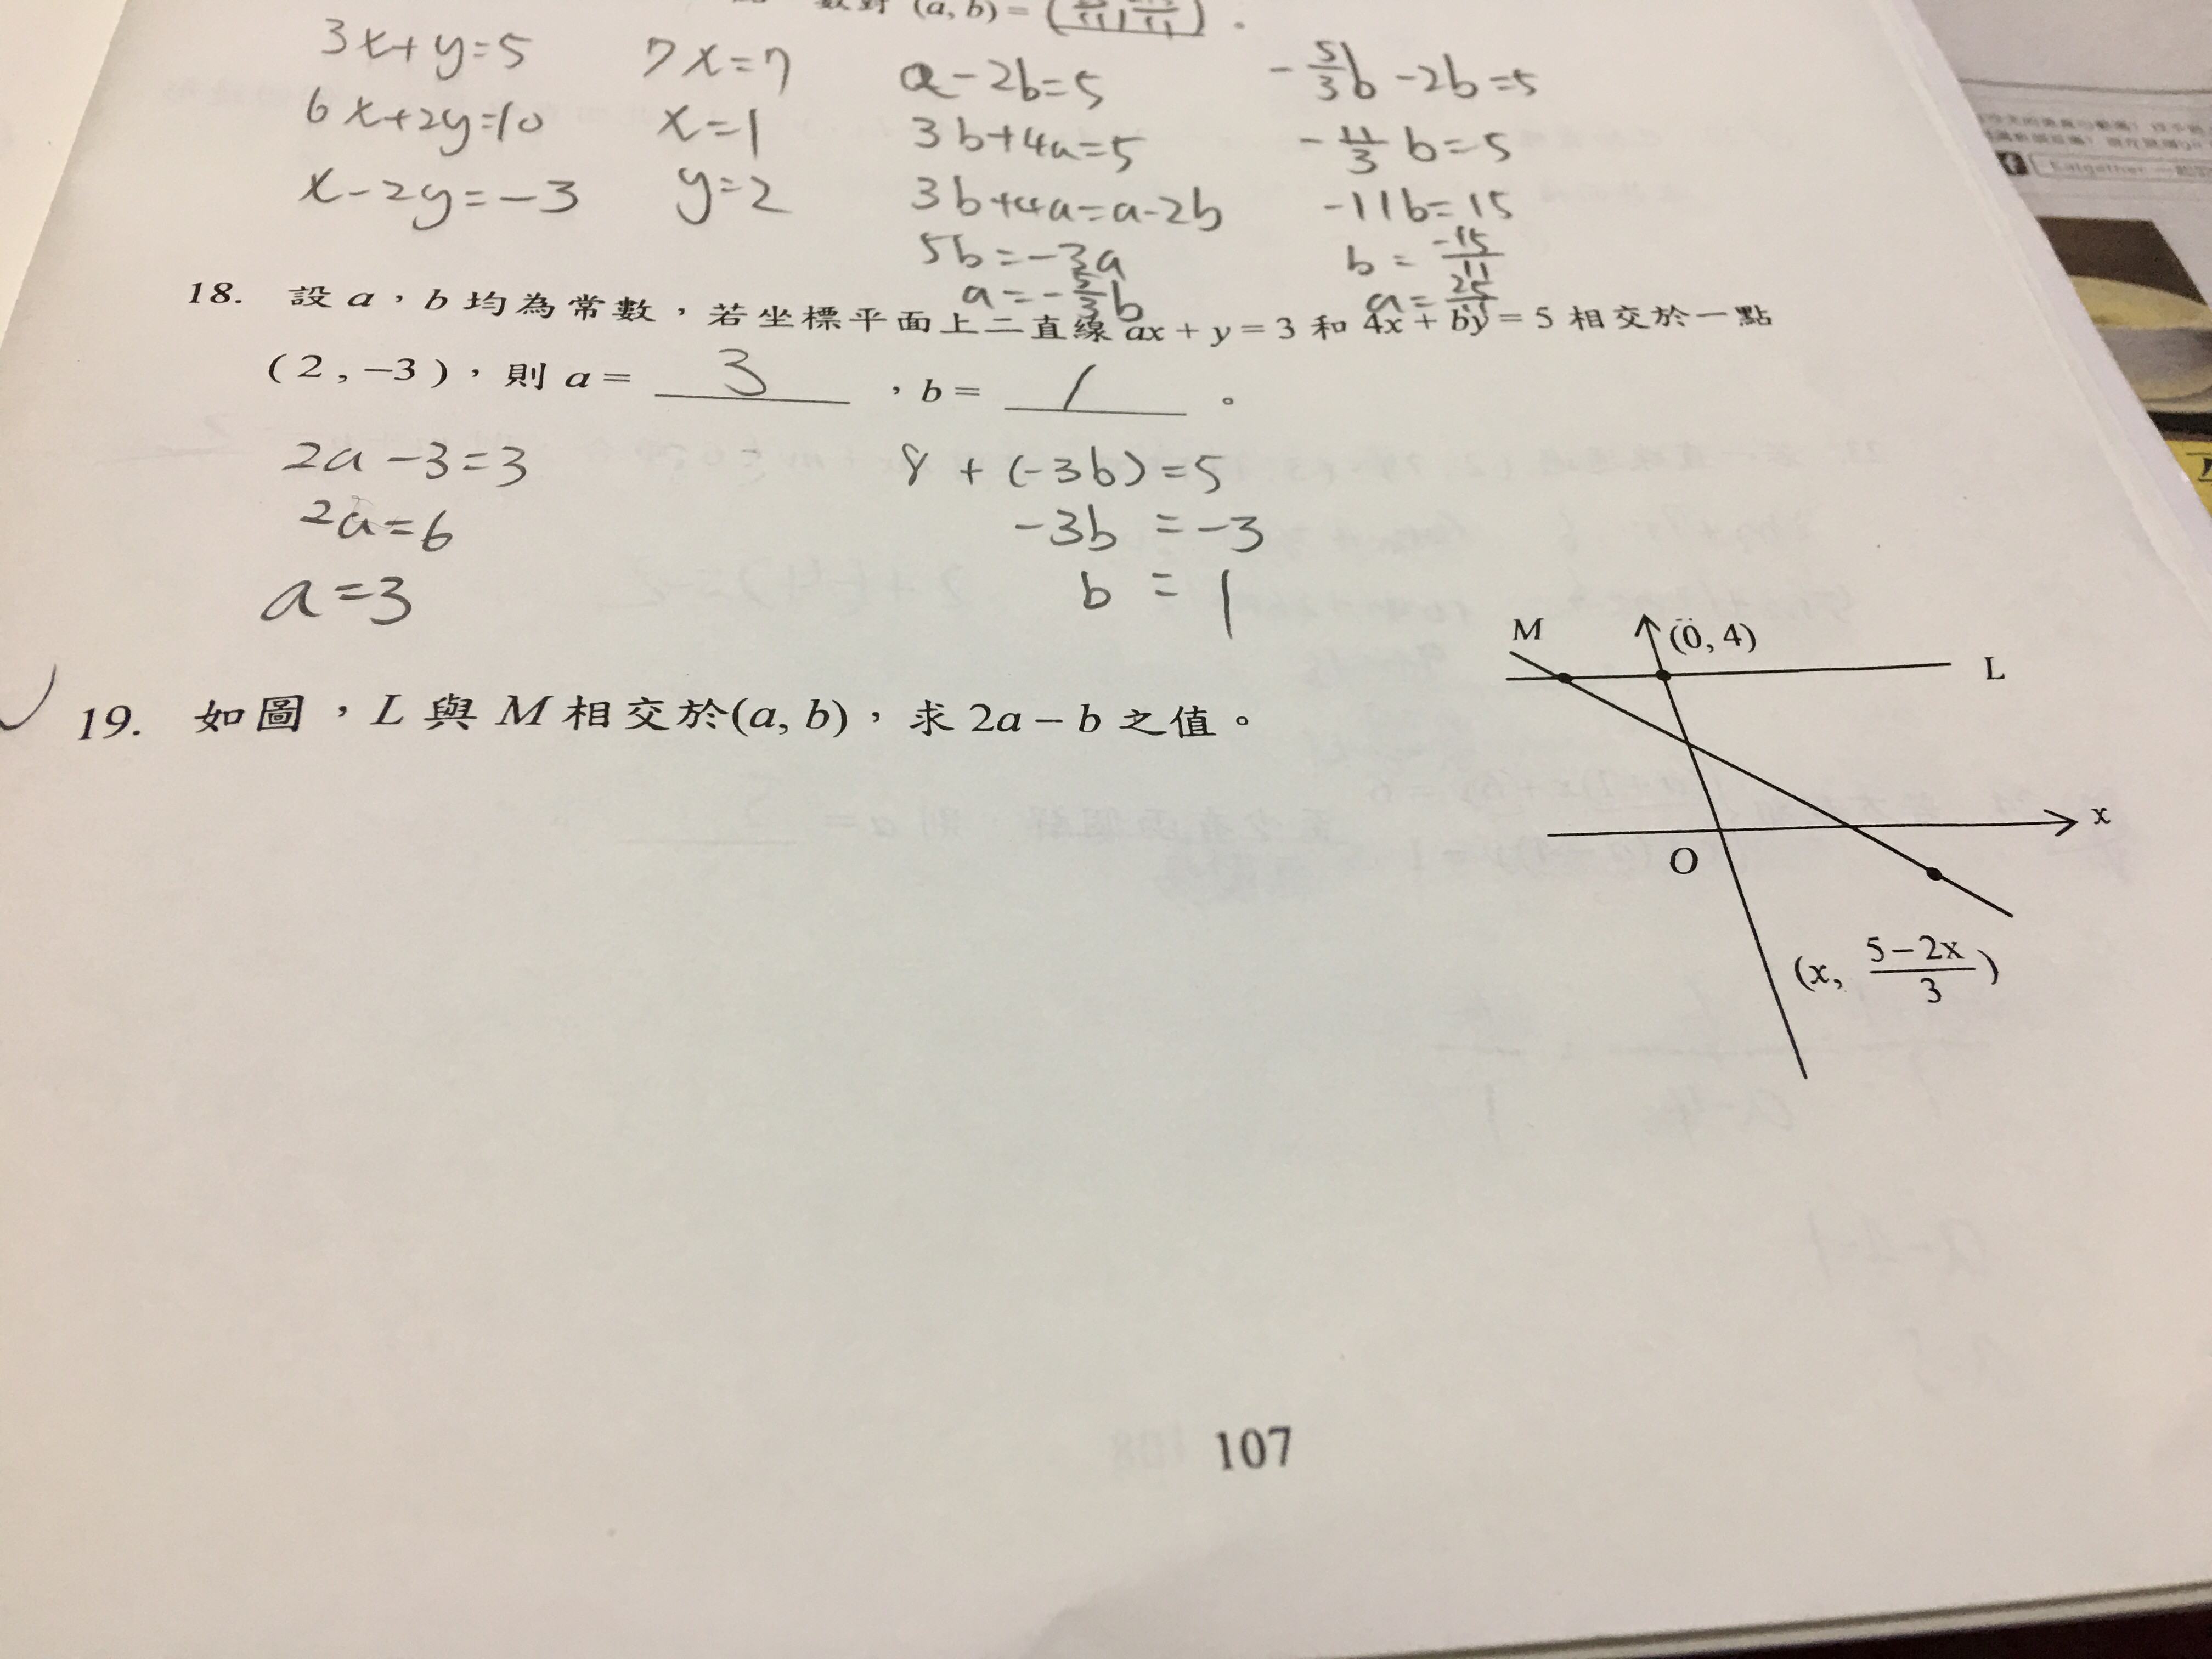 (a, b) =
3x+y=5 7x=7 a-2b=5 -5/3b-2b=5
6x+2y=10 x=1 3b+4a=5 -11/3 b=5
x-2y=-3 y=2 3b+4a=a-2b -11b=15
5b=-3a b=-15/11
a=-5/3b a=25/11
18. 設 a,b 均為常數,若坐標平面上二直線 ax + y = 3 和 4x + by = 5 相交於一點
(2,−3),則 a = 3 ,b = 1 。
2a-3=3 8+(-3b)=5
2a=6 -3b=-3
a=3 b=1
19. 如圖,L 與 M 相交於(a, b),求 2a − b 之值。
M (0, 4)
L
x
O
(x, (5−2x)/3)
107